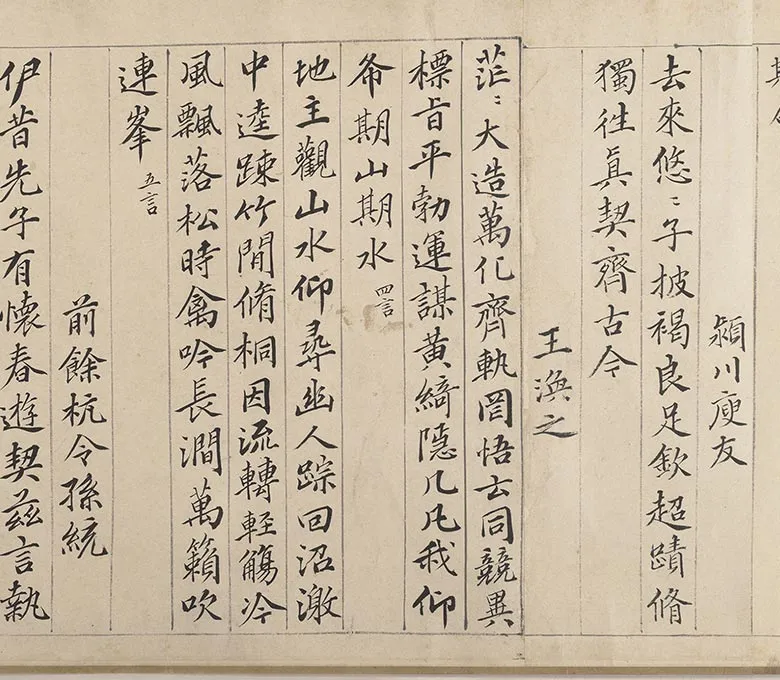 頴川庾友
去來悠〻子披褐良足欽超蹟脩
獨往真契齊古今
王渙之
茫〻大造萬化齊軌罔悟玄同競異
標旨平勃運謀黃綺隱几凡我仰
希期山期水 四言
地主觀山水仰尋幽人踪回沼激
中逵踈竹閒脩桐因流轉輕觴冷
風飄落松時禽吟長澗萬籟吹
連峯 五言
前餘杭令孫統
伊昔先子有懷春遊契茲言執